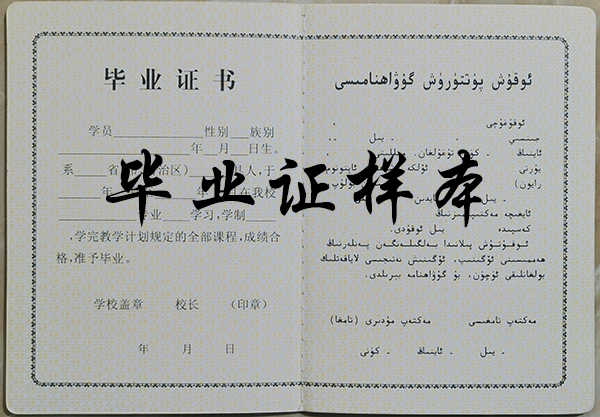 毕业证书
学员____________性别___族别
__________________年__月__日生。
系____省
人,于
年
日在我校
专业____学习,学制____
,学完教学计划规定的全部课程,成绩合
格,准予毕业。
学校盖章 校长 (印章)
年 月 日
毕业证样本
ئوقۇش پۈتتۈرۈش گۇۋاھنامىسى
ئوقۇغۇچى
جىنسىي . . يىل .
ئاينىڭ
يۇرتى
رايون)
. يىل .
كەسپىدە . يىل ئوقۇدى.
ئوقۇتۇش پىلانىدا بەلگىلەنگەن پەنلەرنىڭ
ھەممىسىنى ئۆگىنىپ، ئۆگىنىش نەتىجىسى لاياقەتلىك
بولغانلىقى ئۈچۈن، بۇ گۇۋاھنامە بېرىلدى.
مەكتەپ تامغىسى مەكتەپ مۇدىرى (تامغا)
. يىل . ئاينىڭ . كۈنى